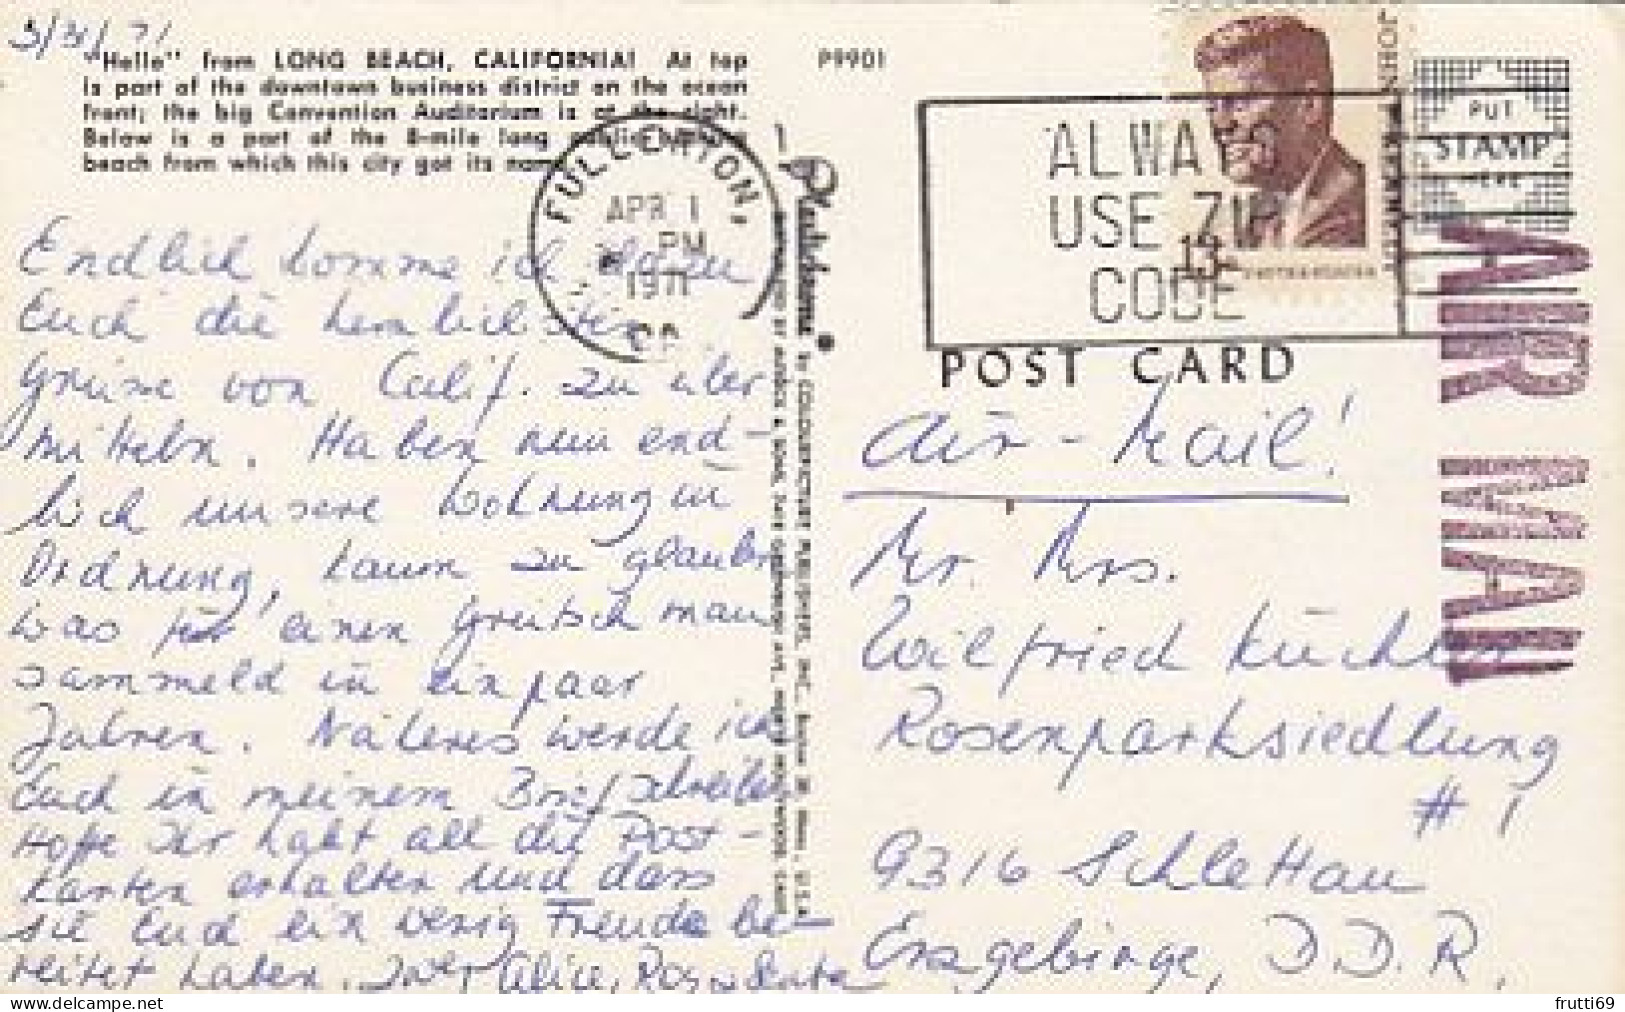 3/31/71
"Hello" from LONG BEACH, CALIFORNIA! At top
is part of the downtown business district on the ocean
front; the big Convention Auditorium is at the right.
Below is a part of the 8-mile long public
beach from which this city got its name.
P9901
FULLERTON,
APR 1
PM
1971
ALWAYS
USE ZIP
CODE
JOHN F KENNEDY
13c
PUT
STAMP
HERE
AIR MAIL
POST CARD
Plastichrome
by COLOURPICTURE PUBLISHERS, INC., Boston 30, Mass., U.S.A.
Endlich komme ich dazu
Euch die herzlichsten
Grüsse von Calif. zu über
mitteln. Haben nun end-
lich unsere Wohnung in
Ordnung, kaum zu glauben
was für einen man
sammeld in ein paar
Jahren. Näheres werde ich
Euch in meinem Brief schreiben
Hoffe Ihr habt all die Post-
karten erhalten und dass
sie Euch ein wenig Freude be-
reitet haben. Alice,
Air-Mail!
Mr. Mrs.
Wilfried Küchler
Rosenparksiedlung
# 1
9316 Schlettau
Erzgebirge, D.D.R.
frutti69